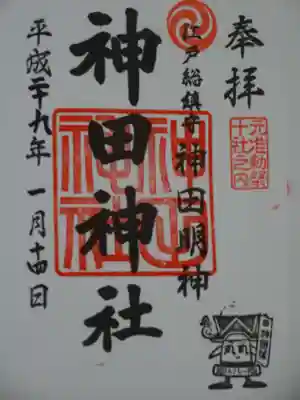 奉拝
元准勅祭
十社之内
江戸総鎮守 神田明神
神田神社
平成二十九年 一月十四日